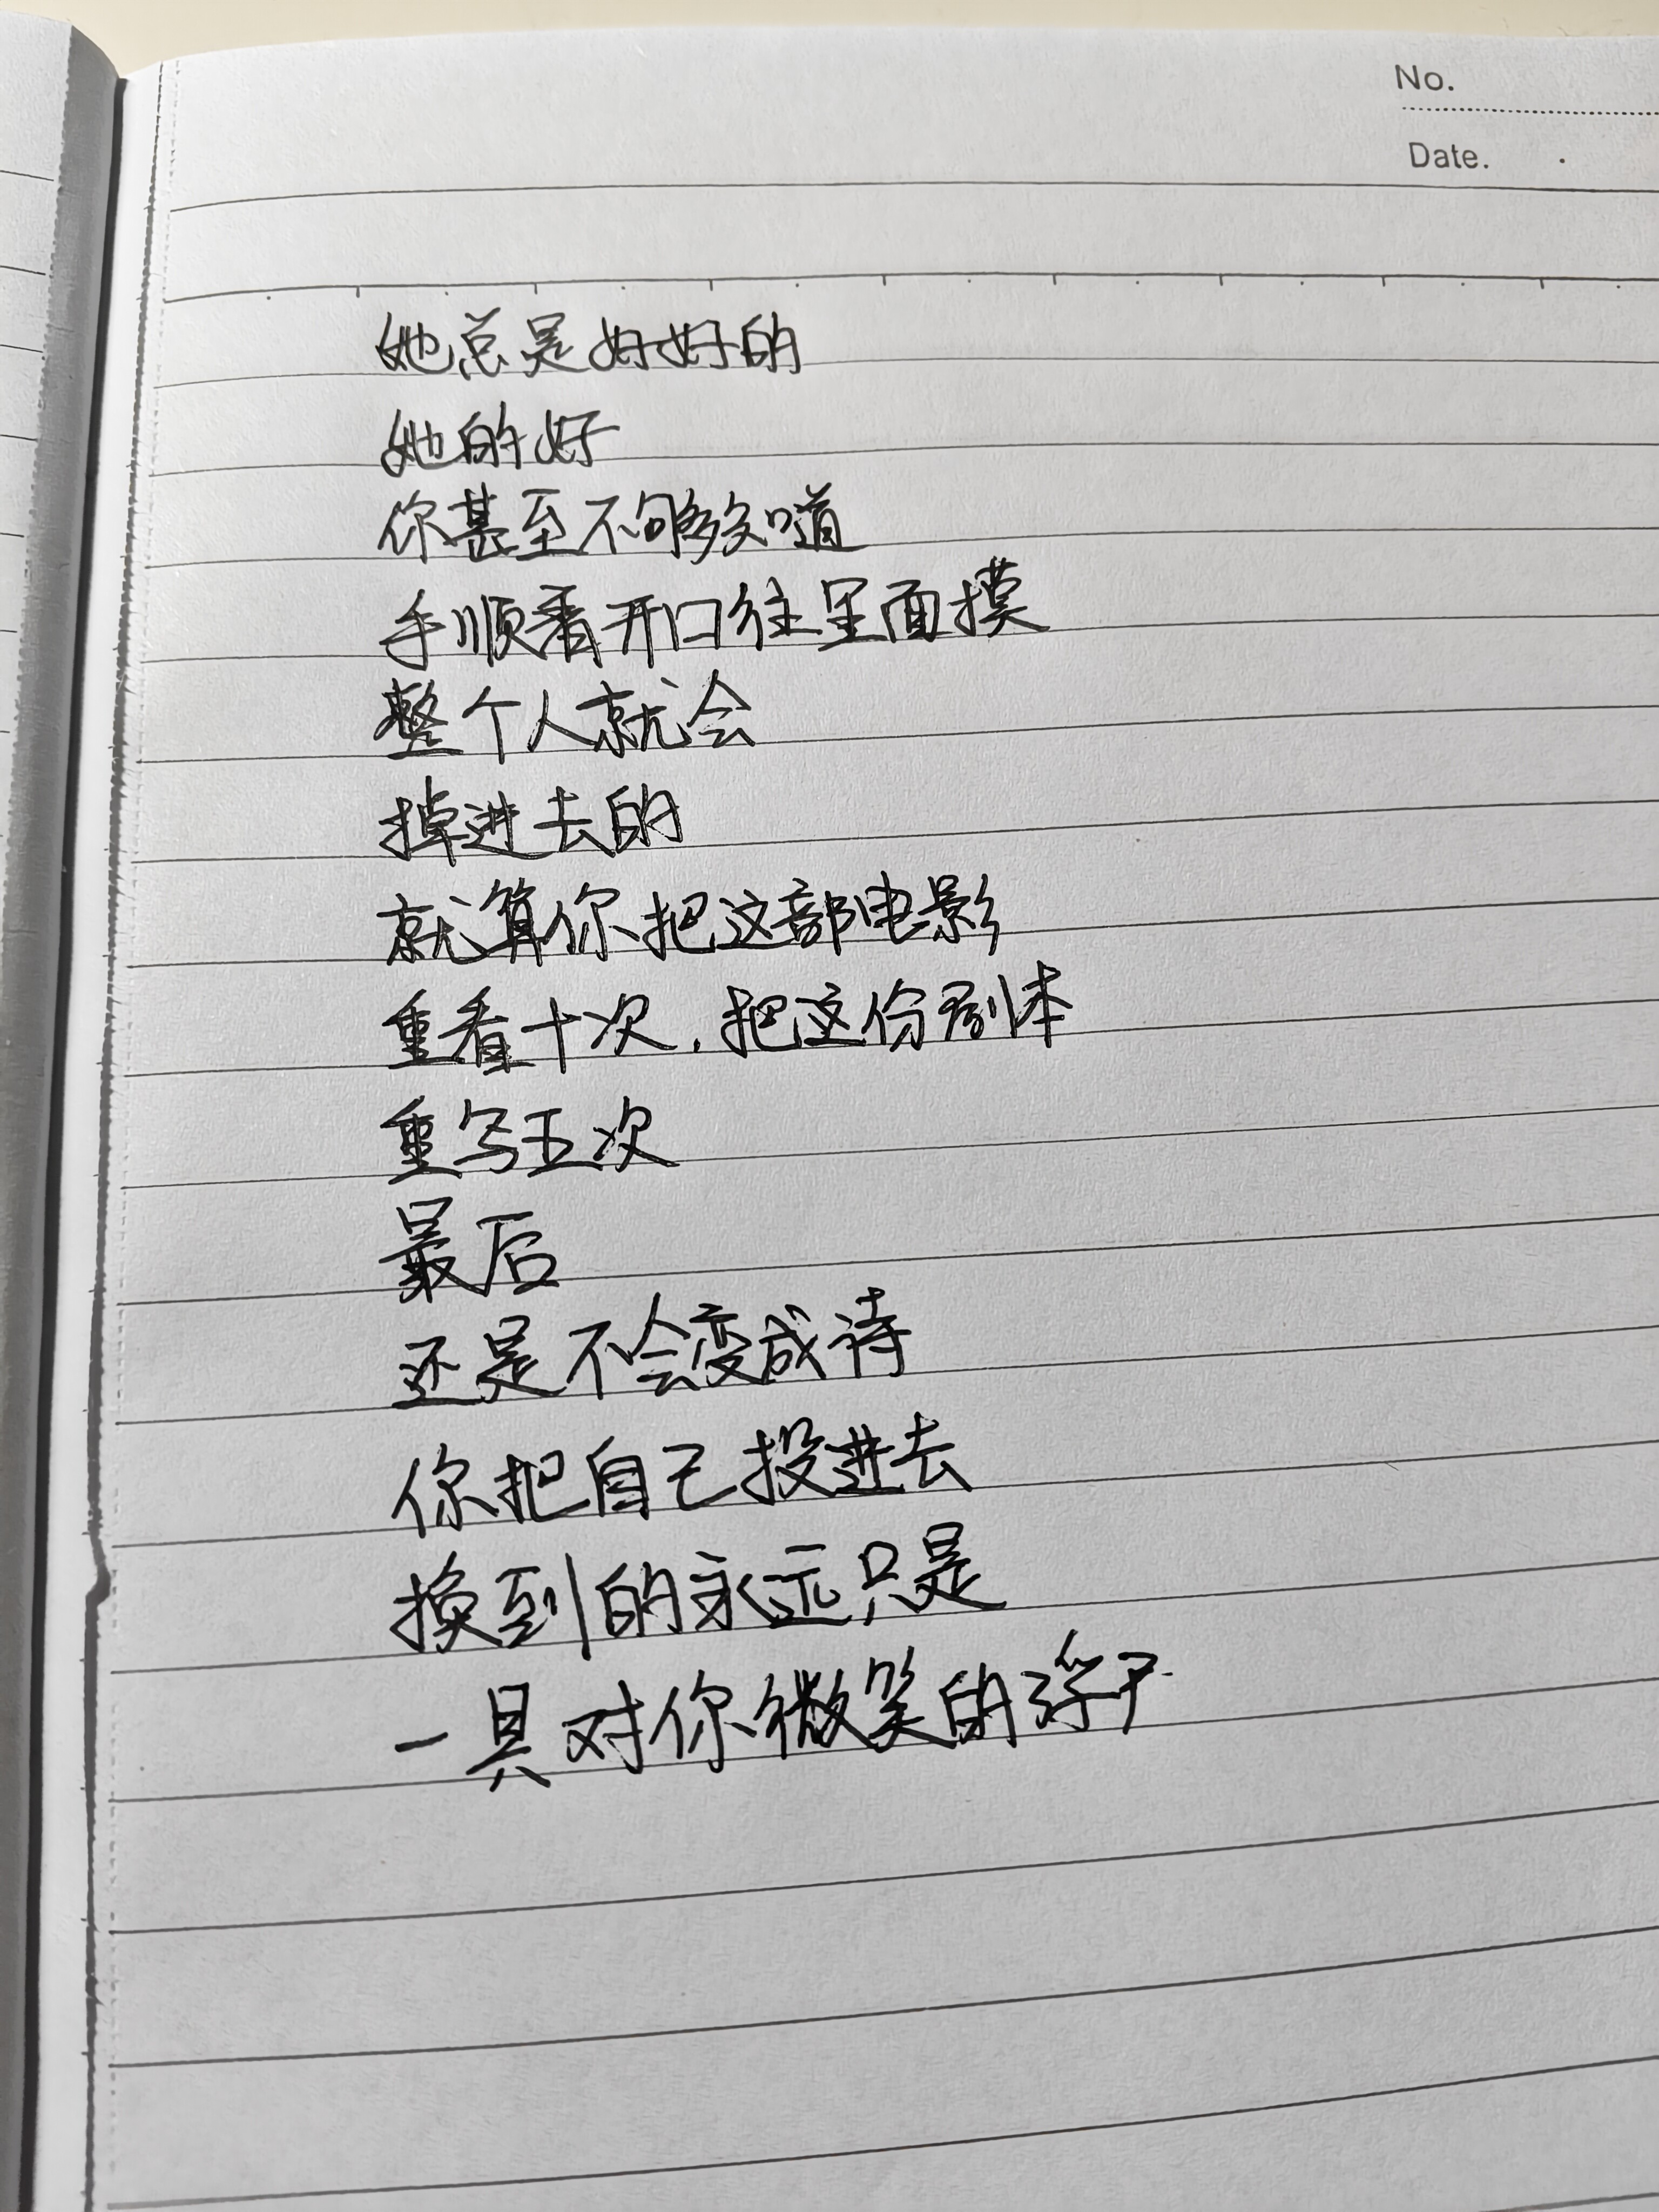 No.
Date.
她总是好好的
她的好
你甚至不够知道
手顺着开口往里面摸
整个人就会
掉进去的
就算你把这部电影
重看十次，把这份剧本
重写五次
最后
还是不会变成诗
你把自己投进去
换到的永远只是
一具对你微笑的浮尸